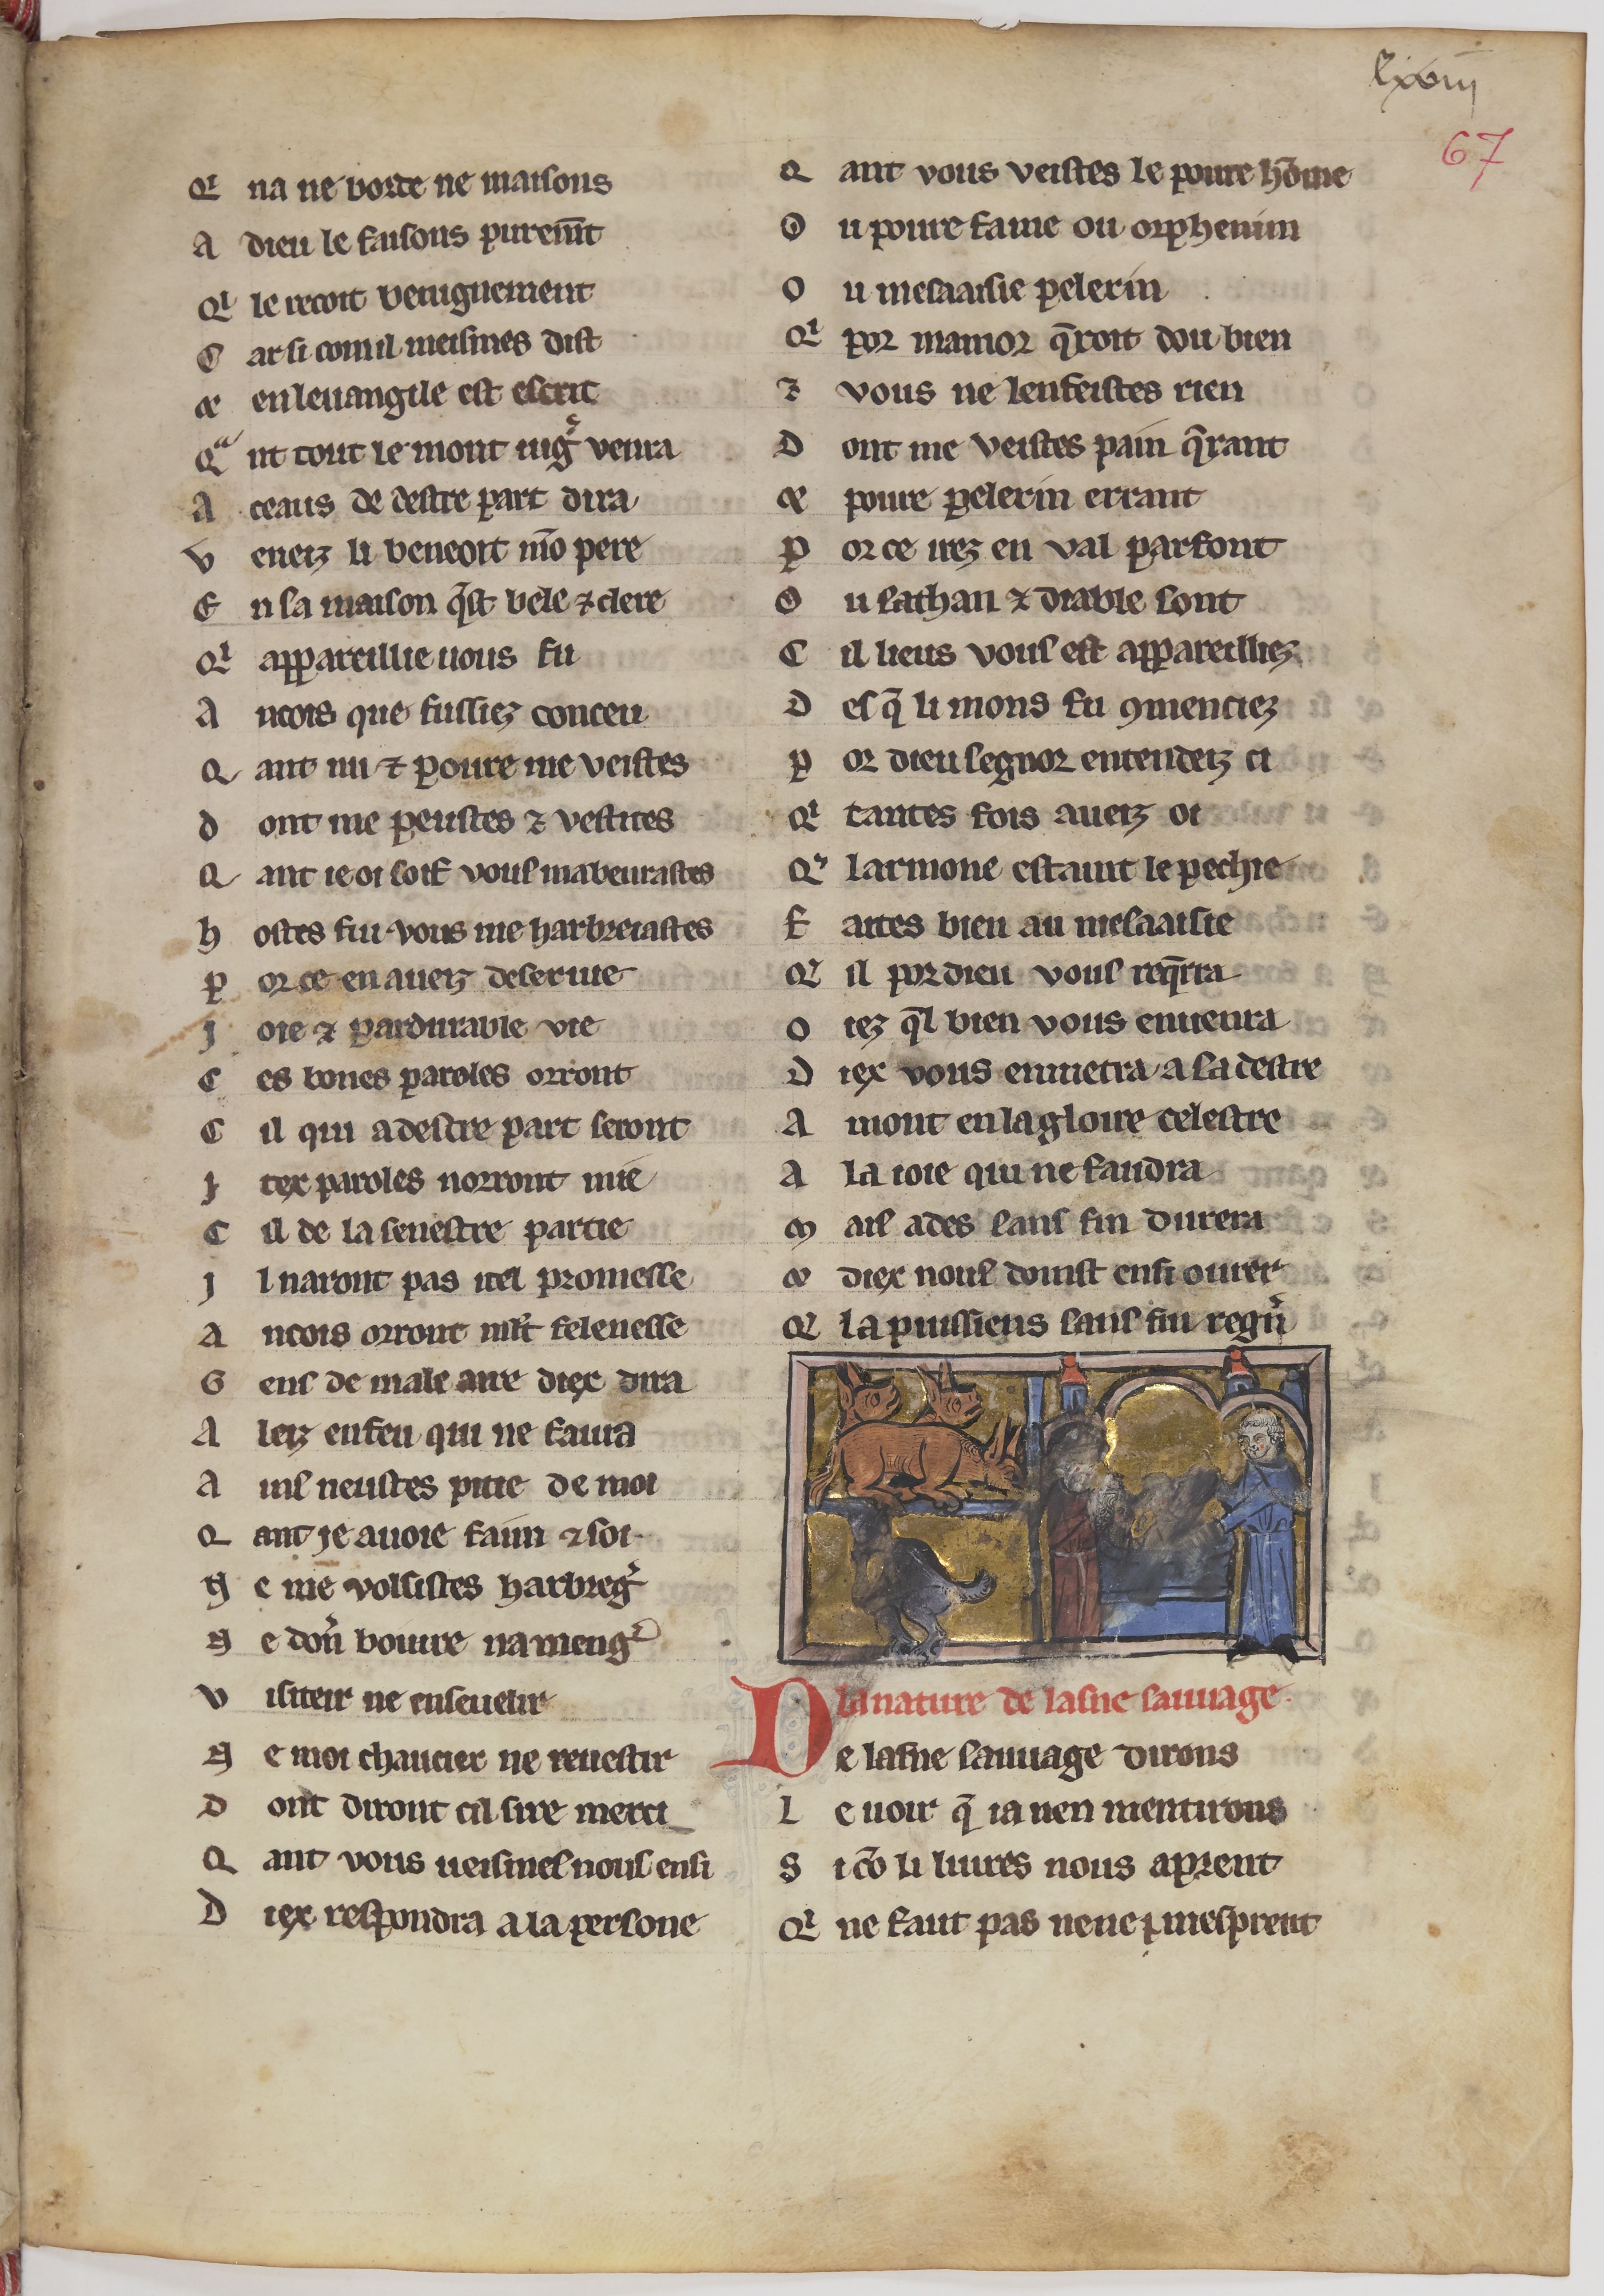 lxviij
67
Qi na ne borde ne maisons
A dieu le faisons puremt̄
Qi le recoit benignement
C ar si comil meismes dist
Et en leuangile est escrit
Qa nt tout le mont iug̉ venra
A ceaus de destre part dira
V eneiz li beneoit mō pere
E n sa maison q̄st bele ⁊ clere
Qi appareillie uous fu
A ncois que fussiez conceu
Q ant nu ⁊ poure me veistes
D ont me peustes ⁊ vestites
Q ant ie oi soif vous mabeurastes
H ostes fui vous me harbreiastes
P or ce en aueiz deseruie
J oie ⁊ pardurable vie
C es bones paroles orront
C il qui a destre part seront
J tex paroles norront mie
C il de la senestre partie
J l naront pas itel promesse
A ncois orront mlt̄ felenesse
G ens de male aire diex dira
A leiz en feu qui ne faura
A ins neustes pitie de moi
Q ant ie auoie faim ⁊ soi
N e me volsistes harbreg̉
N e don̉ boiure na meng̉
V isiteir ne enseuelir
N e moi chaucier ne reuestir
D ont diront cil sire merci
Q ant vous ueismes nous ensi
D iex respondra a la persone
Q ant vous veistes le poure hōme
O u poure fame ou orphenin
O u mesaaisie pelerin
Qi por mamor q̄roit dou bien
⁊ vous ne lenfeistes rien
D ont me veistes pain q̄rant
Et poure pelerin errant
P or ce irez en val parfont
O u sathan ⁊ diable sont
C il lieus vous est appareilliez
D es q̄ li mons fu ꝯmenciez
P or dieu segnor entendeiz ci
Qi tantes fois aueiz oi
Qe larmone estaint le pechie
F aites bien au mesaaisie
Qi il por dieu vous req̄rra
O iez q̄l bien vous enuenra
D iex vous enmetra a la destre
A mont en la gloire celestre
A la ioie qui ne faudra
M ais ades sans fin durera
Et diex nous doinst ensi ourer
Qe la puissiens sans fin regn̉
D la nature de lasne sauuage.
e lasne sauuage dirons
L e uoir q̄ ia nen mentirons
S i cō li liures nous aprent
Qi ne faut pas nene ꝑmesprent